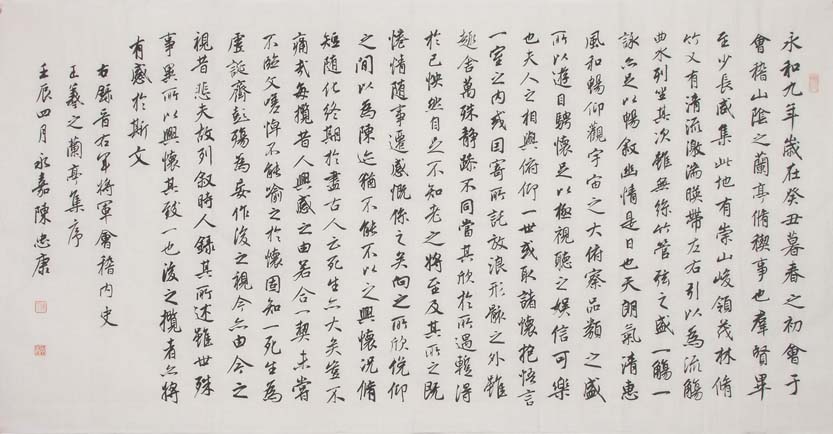 永和九年歲在癸丑暮春之初會于
會稽山陰之蘭亭脩稧事也羣賢畢
至少長咸集此地有崇山峻領茂林脩
竹又有清流激湍暎帶左右引以為流觴
曲水列坐其次雖無絲竹管弦之盛一觴一
詠亦足以暢敘幽情是日也天朗氣清惠
風和暢仰觀宇宙之大俯察品類之盛
所以遊目騁懷足以極視聽之娛信可樂
也夫人之相與俯仰一世或取諸懷抱悟言
一室之內或因寄所託放浪形骸之外雖
趣舍萬殊静躁不同當其欣於所遇暫得
於己怏然自足不知老之將至及其所之既
惓情隨事遷感慨係之矣向之所欣俛仰
之間以為陳迹猶不能不以之興懷況脩
短隨化終期於盡古人云死生亦大矣豈不
痛哉每攬昔人興感之由若合一契未嘗
不臨文嗟悼不能喻之於懷固知一死生為
虛誕齊彭殤為妄作後之視今亦由今之
視昔悲夫故列敘時人錄其所述雖世殊
事異所以興懷其致一也後之攬者亦將
有感於斯文
右錄晉右軍將軍會稽內史
王羲之蘭亭集序
壬辰四月永嘉陳忠康